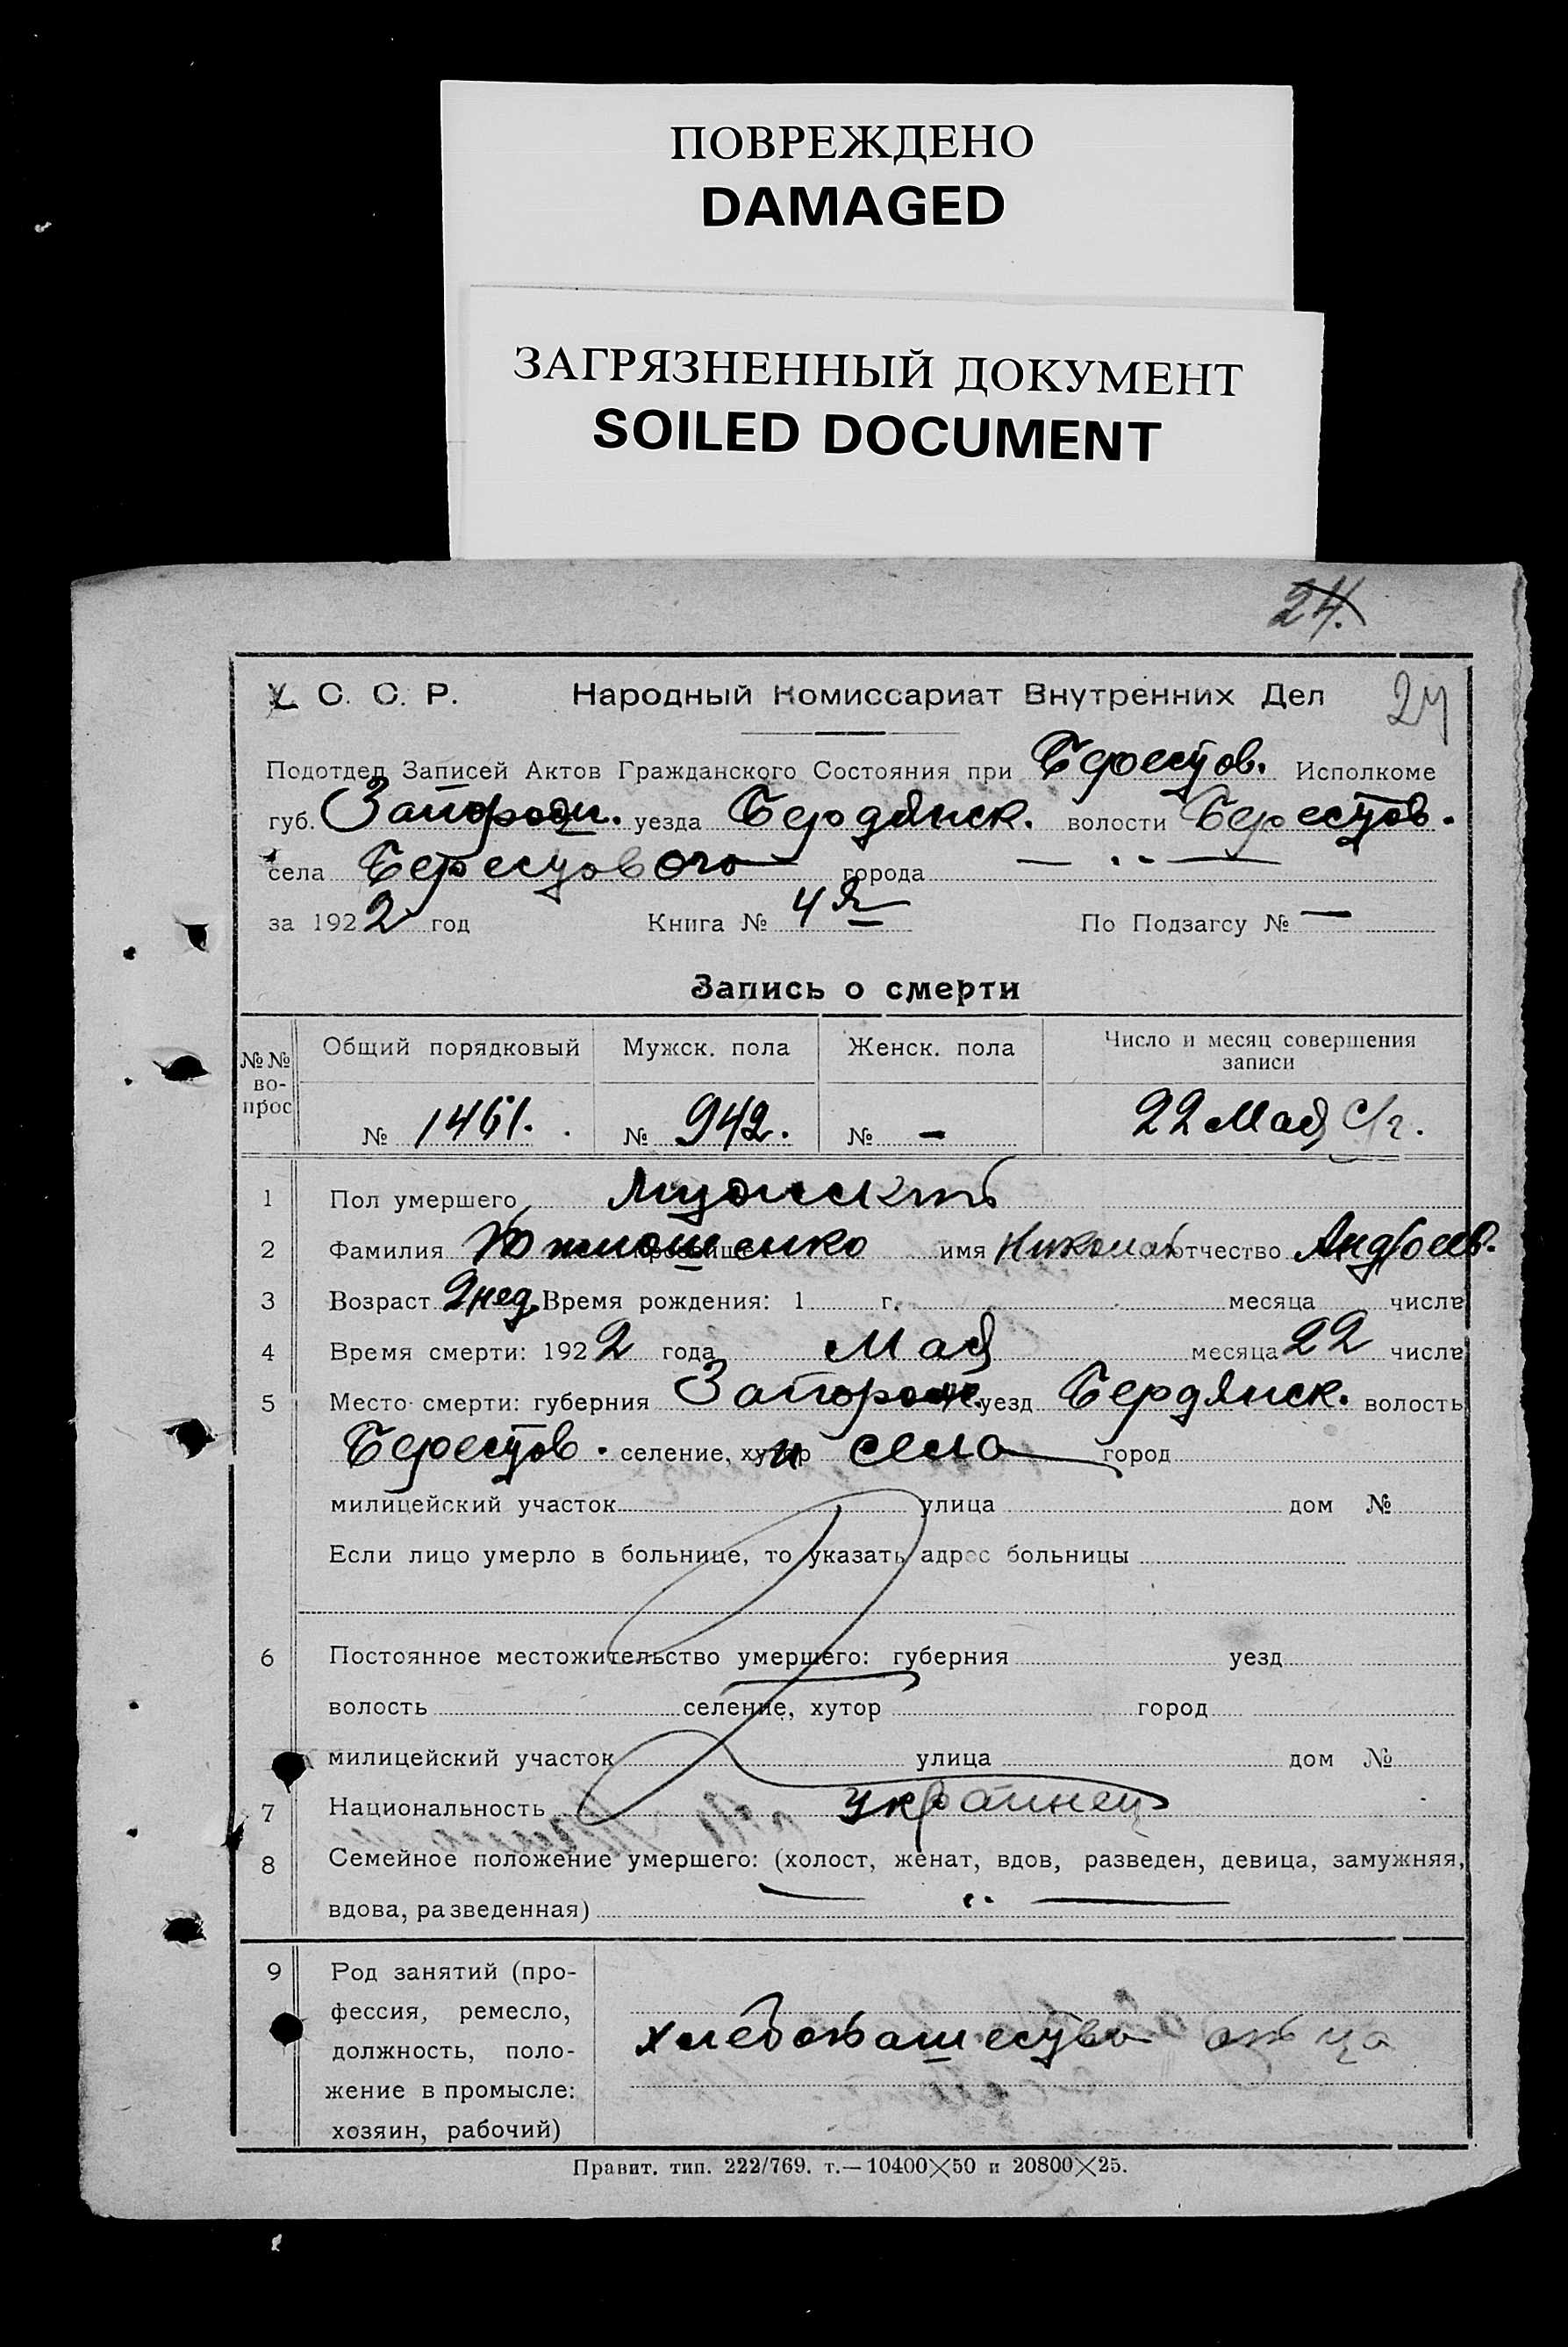 ПОВРЕЖДЕНО
DAMAGED
ЗАГРЯЗНЕННЫЙ ДОКУМЕНТ
SOILED DOCUMENT
24.
У. С. С. Р. Народный Комиссариат Внутренних Дел 24
Подотдел Записей Актов Гражданского Состояния при Берестов. Исполкоме
губ. Запорож. уезда Бердянск. волости Берестов.
села Берестового города — " —
за 1922 год Книга № 4я По Подзагсу № —
Запись о смерти
№№ во-прос Общий порядковый Мужск. пола Женск. пола Число и месяц совершения записи
№ 1461. № 942. № - 22 Мая с/г.
1 Пол умершего Мужскть
2 Фамилия прозвище имя Николай отчество Андреев.
3 Возраст 2 нед. Время рождения: 1 г. месяца числа
4 Время смерти: 1922 года Мая месяца 22 числа
5 Место смерти: губерния Запорож. уезд Бердянск. волость
Берестов. селение, хутор и село город
милицейский участок улица дом №
Если лицо умерло в больнице, то указать адрес больницы
6 Постоянное местожительство умершего: губерния уезд
волость селение, хутор город
милицейский участок улица дом №
7 Национальность украинец
8 Семейное положение умершего: (холост, женат, вдов, разведен, девица, замужняя,
вдова, разведенная) — " —
9 Род занятий (про-
фессия, ремесло,
должность, поло- хлебопашество отца
жение в промысле:
хозяин, рабочий)
Правит. тип. 222/769. т.—10400×50 и 20800×25.